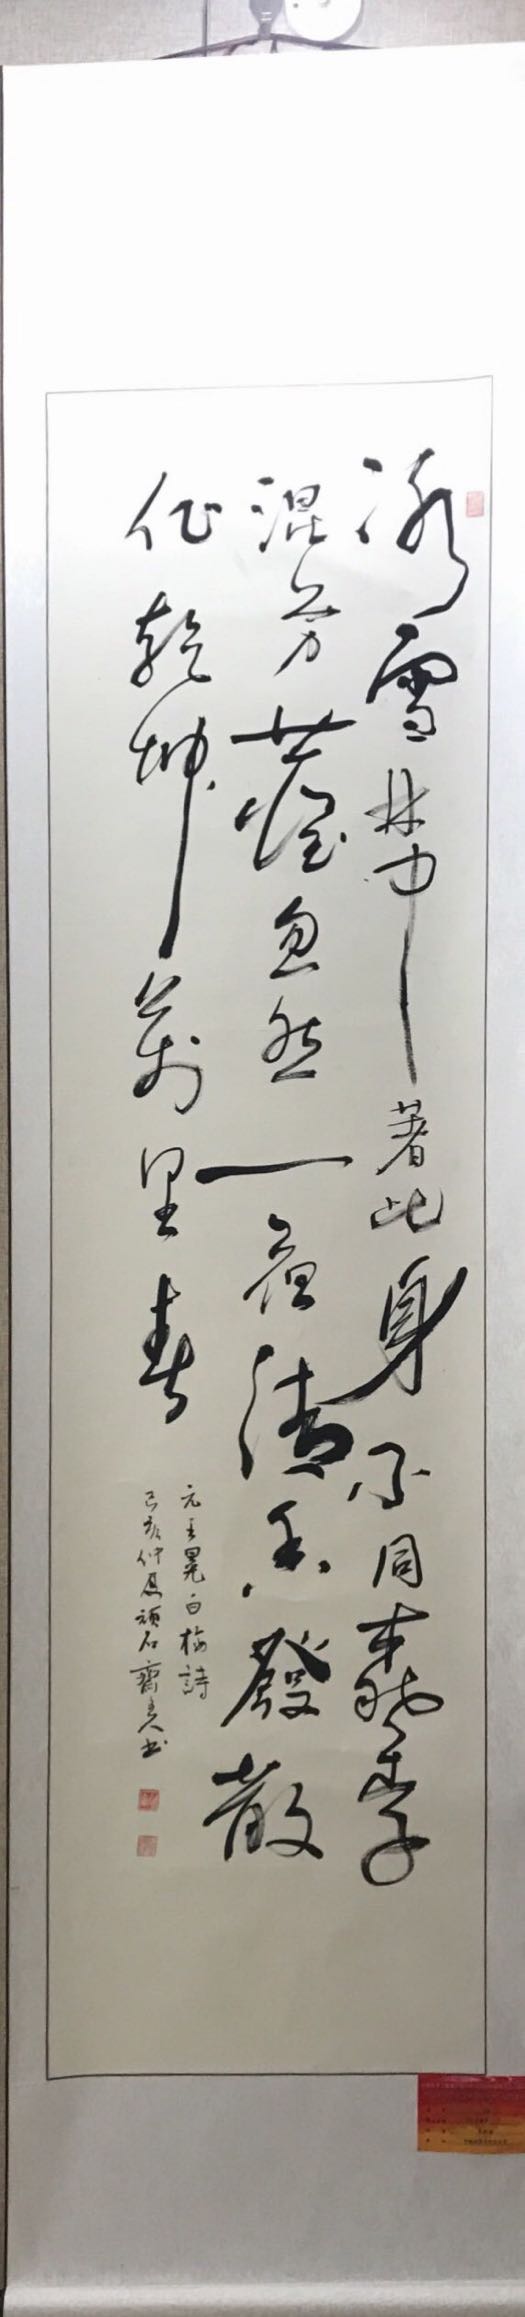 冰雪林中著此身不同桃李
混芳塵忽然一夜清香發散
作乾坤萬里春
元王冕白梅詩
己亥仲夏頑石齋主人书